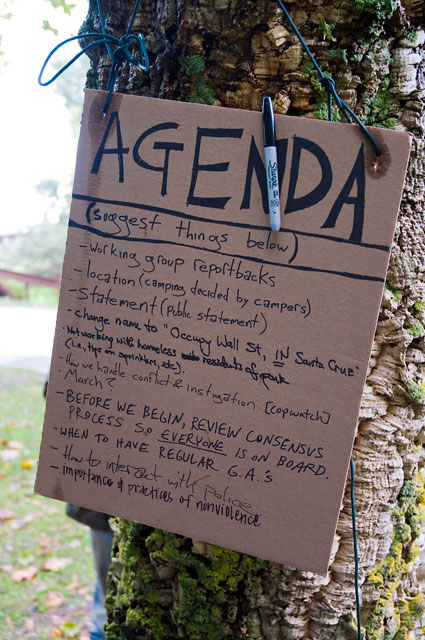 AGENDA
Sharpie
(suggest things below)
- working group reportbacks
- location (camping, decided by campers)
- Statement (Public statement)
- change name to "Occupy Wall St, IN Santa Cruz"
- Networking with homeless residents of park
(i.e., tips on sprinklers, etc.)
- How we handle conflict & instigation. [copwatch]
- March?
- BEFORE WE BEGIN, REVIEW CONSENSUS
PROCESS SO EVERYONE IS ON BOARD.
- WHEN TO HAVE REGULAR G.A.'s
- How to interact with police
- importance & practices of nonviolence